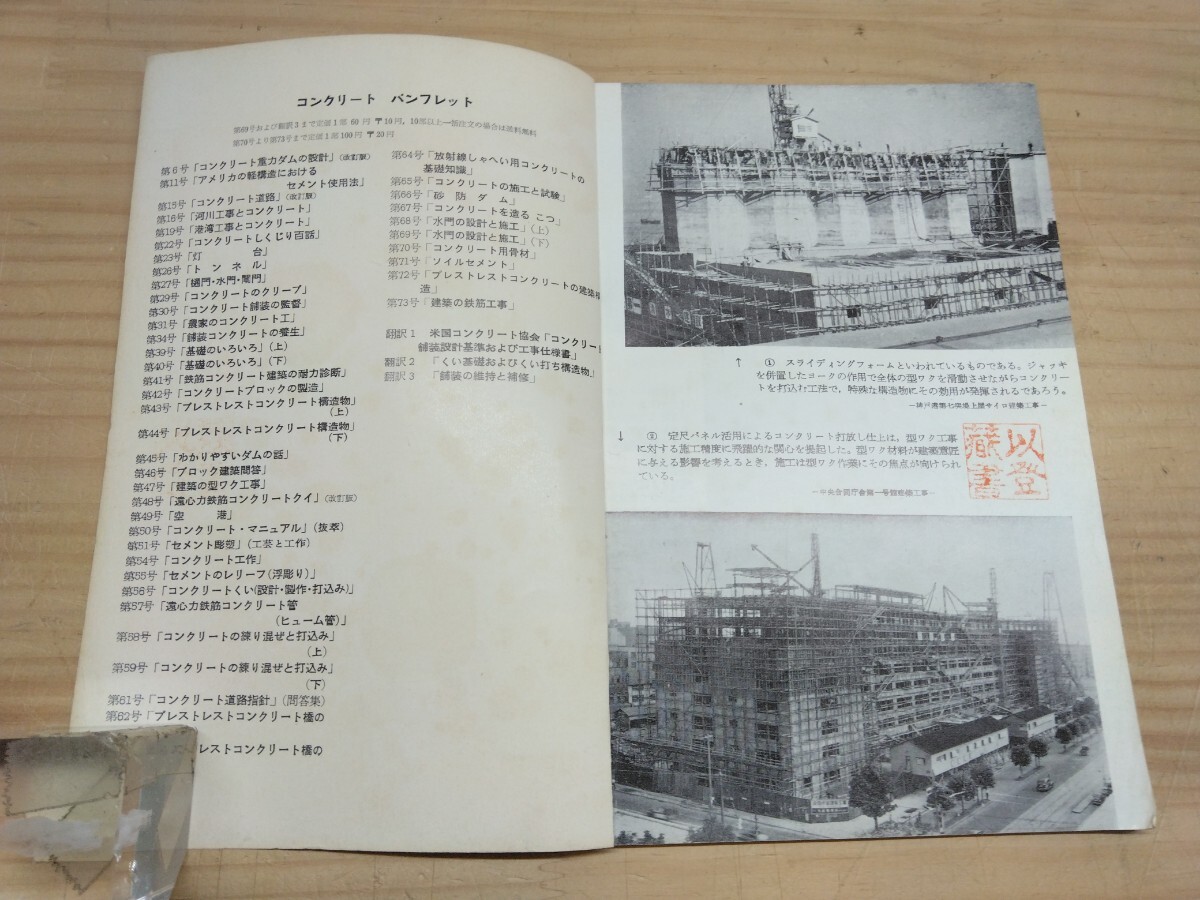 コンクリート パンフレット
第69号および翻訳3まで定価1部 60 円 〒10円, 10部以上一括注文の場合は送料無料
第70号より第73号まで定価1部100円 〒20円
第6号「コンクリート重力ダムの設計」(改訂版)
第11号「アメリカの軽構造における
セメント使用法」
第15号「コンクリート道路」(改訂版)
第16号「河川工事とコンクリート」
第19号「港湾工事とコンクリート」
第22号「コンクリートしくじり百話」
第23号「灯 台」
第26号「トンネル」
第27号「樋門・水門・閘門」
第29号「コンクリートのクリープ」
第30号「コンクリート舗装の監督」
第31号「農家のコンクリート工」
第34号「舗装コンクリートの養生」
第39号「基礎のいろいろ」(上)
第40号「基礎のいろいろ」(下)
第41号「鉄筋コンクリート建築の耐力診断」
第42号「コンクリートブロックの製造」
第43号「プレストレストコンクリート構造物」
(上)
第44号「プレストレストコンクリート構造物」
(下)
第45号「わかりやすいダムの話」
第46号「ブロック建築問答」
第47号「建築の型ワク工事」
第48号「遠心力鉄筋コンクリートクイ」(改訂版)
第49号「空 港」
第50号「コンクリート・マニュアル」(抜萃)
第51号「セメント彫塑」(工芸と工作)
第54号「コンクリート工作」
第55号「セメントのレリーフ(浮彫り)」
第56号「コンクリートくい(設計・製作・打込み)」
第57号「遠心力鉄筋コンクリート管
(ヒューム管)」
第58号「コンクリートの練り混ぜと打込み」
(上)
第59号「コンクリートの練り混ぜと打込み」
(下)
第61号「コンクリート道路指針」(問答集)
第62号「プレストレストコンクリート橋の
レストコンクリート橋の
第64号「放射線しゃへい用コンクリートの
基礎知識」
第65号「コンクリートの施工と試験」
第66号「砂防ダム」
第67号「コンクリートを造る こつ」
第68号「水門の設計と施工」(上)
第69号「水門の設計と施工」(下)
第70号「コンクリート用骨材」
第71号「ソイルセメント」
第72号「プレストレストコンクリートの建築構
造」
第73号「建築の鉄筋工事」
翻訳1 米国コンクリート協会「コンクリート
舗装設計基準および工事仕様書」
翻訳2 「くい基礎およびくい打ち構造物」
翻訳3 「舗装の維持と補修」
↑ ① スライディングフォームといわれているものである。ジャッキ
を併置したヨークの作用で全体の型ワクを滑動させながらコンクリー
トを打込む工法で,特殊な構造物にその効用が発揮されるであろう。
↓ ② 定尺パネル活用によるコンクリート打放し仕上は,型ワク工事
に対する施工精度に飛躍的な関心を提起した。型ワク材料が建築意匠
に与える影響を考えるとき,施工は型ワク作業にその焦点が向けられ
ている。
―中央合同庁舎第一号館新築工事―
以登
蔵書